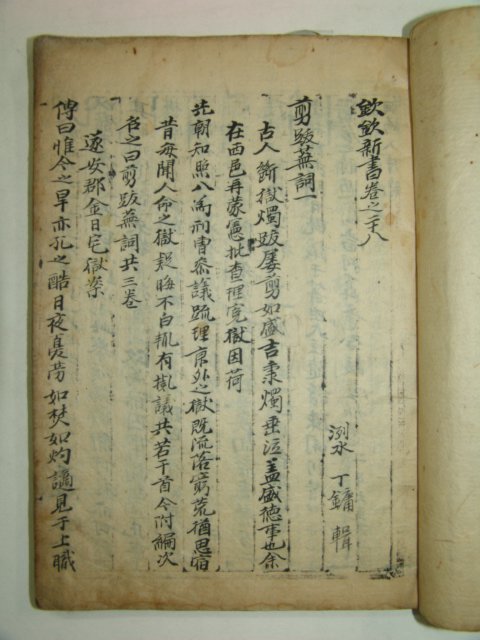 欽欽新書卷之二十八
洌水 丁鏞 輯
剪跋蕪詞一
古人斷獄燭跋屢剪如盛吉秉燭垂泣盖盛德事也余
在西邑再蒙憲批查理寃獄因荷
先朝知照入爲刑曹參議疏理京外之獄旣流落窮荒猶思宿
昔每聞人命之獄起晦不白輒有擬議共若干首今附編次
名之曰剪跋蕪詞共三卷
遂安郡金日宅獄案
傳曰惟今之旱亦孔之酷日夜憂勞如焚如灼謫見于上職